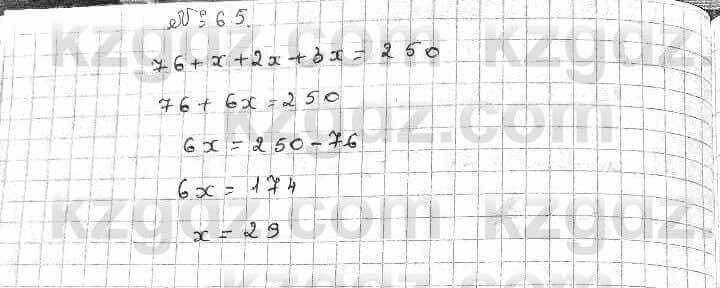 № 65.
76 + x + 2x + 3x = 250
76 + 6x = 250
6x = 250 - 76
6x = 174
x = 29
kzgdz.com
kzgdz.com
kzgdz.com
kzgdz.com